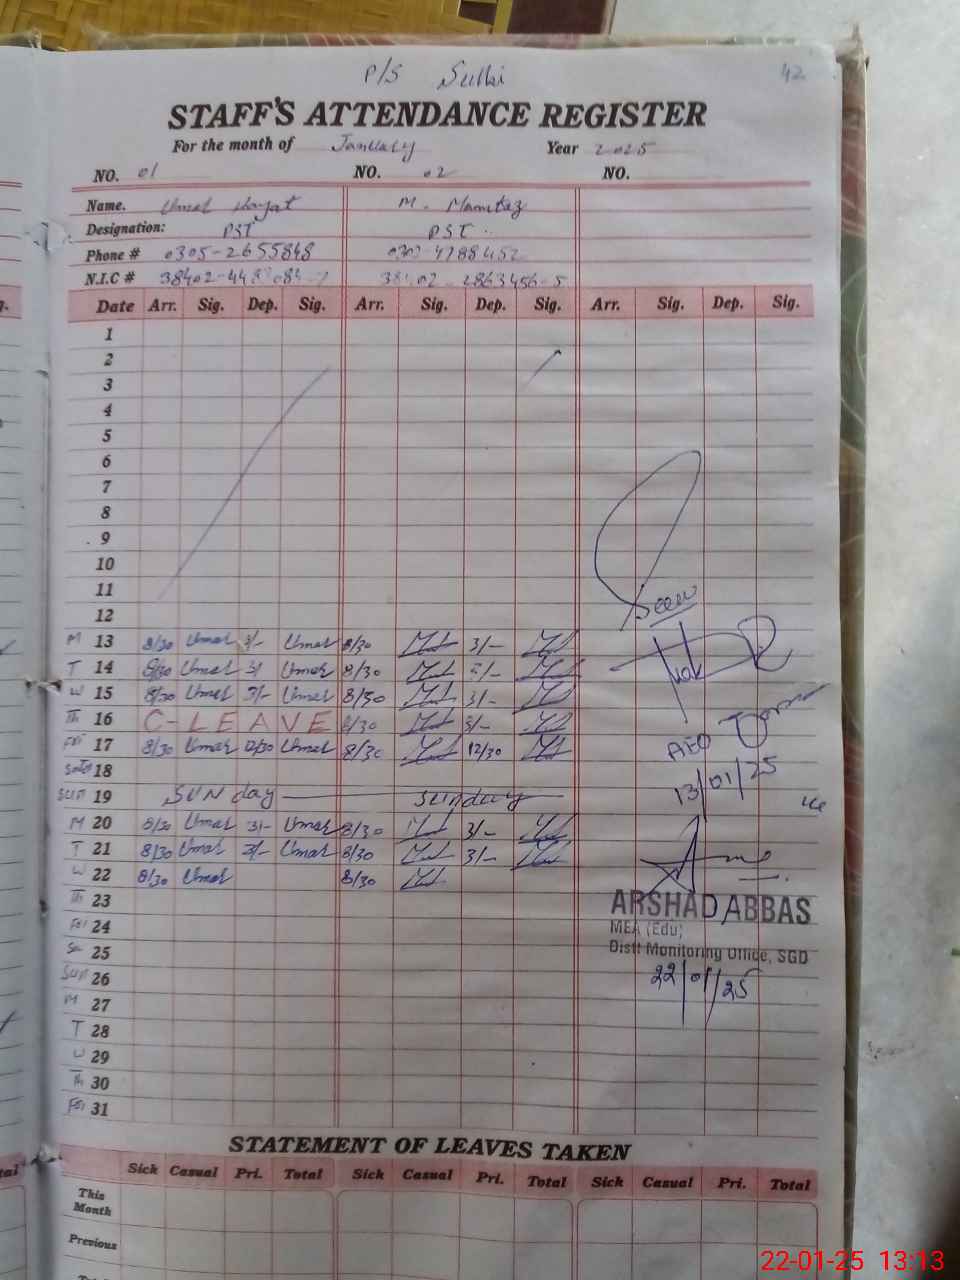 P/S Sulki 42
STAFF'S ATTENDANCE REGISTER
For the month of January Year 2025
NO. 01 NO. 02 NO.
Name. Umar Hayat M. Mumtaz
Designation: PST PST
Phone # 0305-2655848
N.I.C #
Date Arr. Sig. Dep. Sig. Arr. Sig. Dep. Sig. Arr. Sig. Dep. Sig.
1
2
3
4
5
6
7
8
9
10
11
12
Seen
M 13 8/30 Umar 3/- Umar 8/30 3/-
T 14 8/30 Umar 3/ Umar 8/30
W 15 8/30 Umar 3/- Umar 8/30 3/-
Th 16 C-LEAVE 8/30 3/-
Fri 17 8/30 Umar 12/30 Umar 8/30 12/30
AEO
18
13/01/25
Sun 19 Sunday Sunday
M 20 8/30 Umar 3/- Umar 8/30 3/-
T 21 8/30 Umar 3/- Umar 8/30 3/-
W 22 8/30 Umar 8/30
Th 23
ARSHAD ABBAS
Fri 24
MEA (Edu)
Sa 25
Distt Monitoring Office, SGD
Sun 26
22/01/25
M 27
T 28
W 29
Th 30
Fri 31
STATEMENT OF LEAVES TAKEN
Sick Casual Pri. Total Sick Casual Pri. Total Sick Casual Pri. Total
This
Month
Previous
22-01-25 13:13